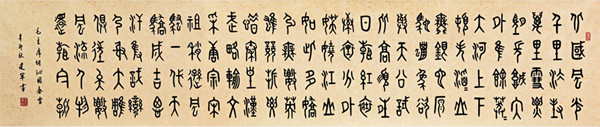 北國風光千
里冰封萬里
雪飄望長城
內外惟餘莽
莽大河上下
頓失滔滔山
舞銀蛇原馳
蠟象欲與天
公試比高須
晴日看紅裝
素裹分外妖
嬈江山如此
多嬌引無數
英雄競折腰
惜秦皇漢武
略輸文采唐
宗宋祖稍遜
風騷一代天
驕成吉思汗
只識彎弓射
大雕俱往矣
數風流人物
還看今朝
毛主席詞沁園春雪
辛卯秋建軍書